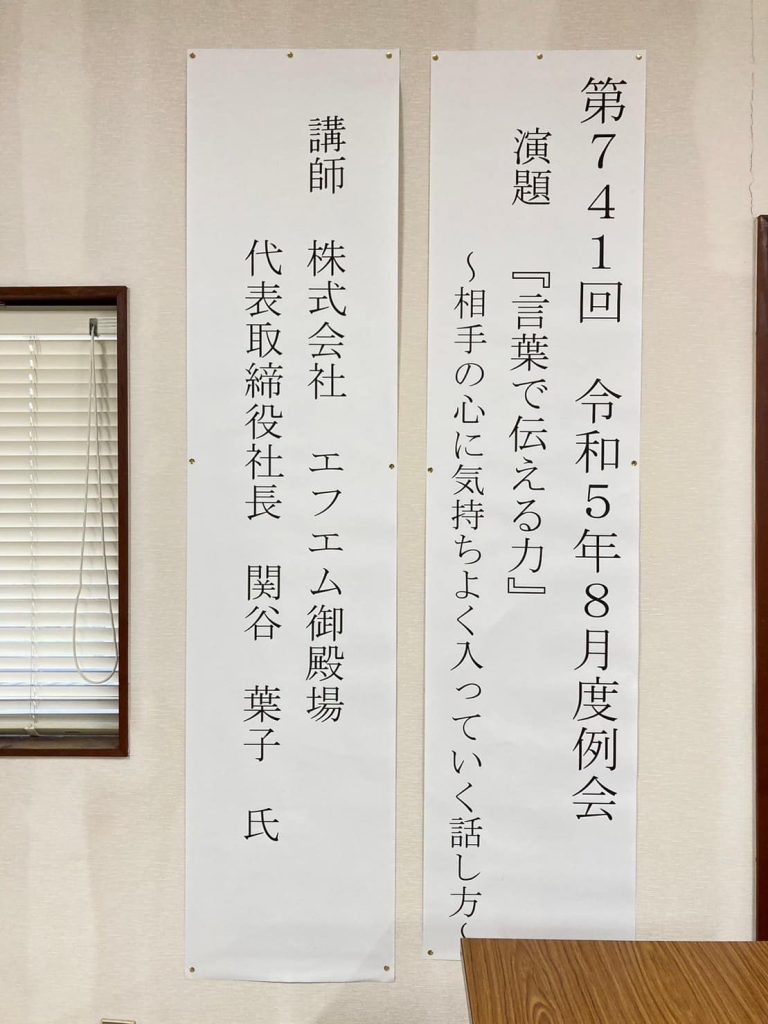 第７４１回　令和５年８月度例会
演題　『言葉で伝える力』
～相手の心に気持ちよく入っていく話し方～
講師　株式会社　エフエム御殿場
代表取締役社長　関谷　葉子　氏